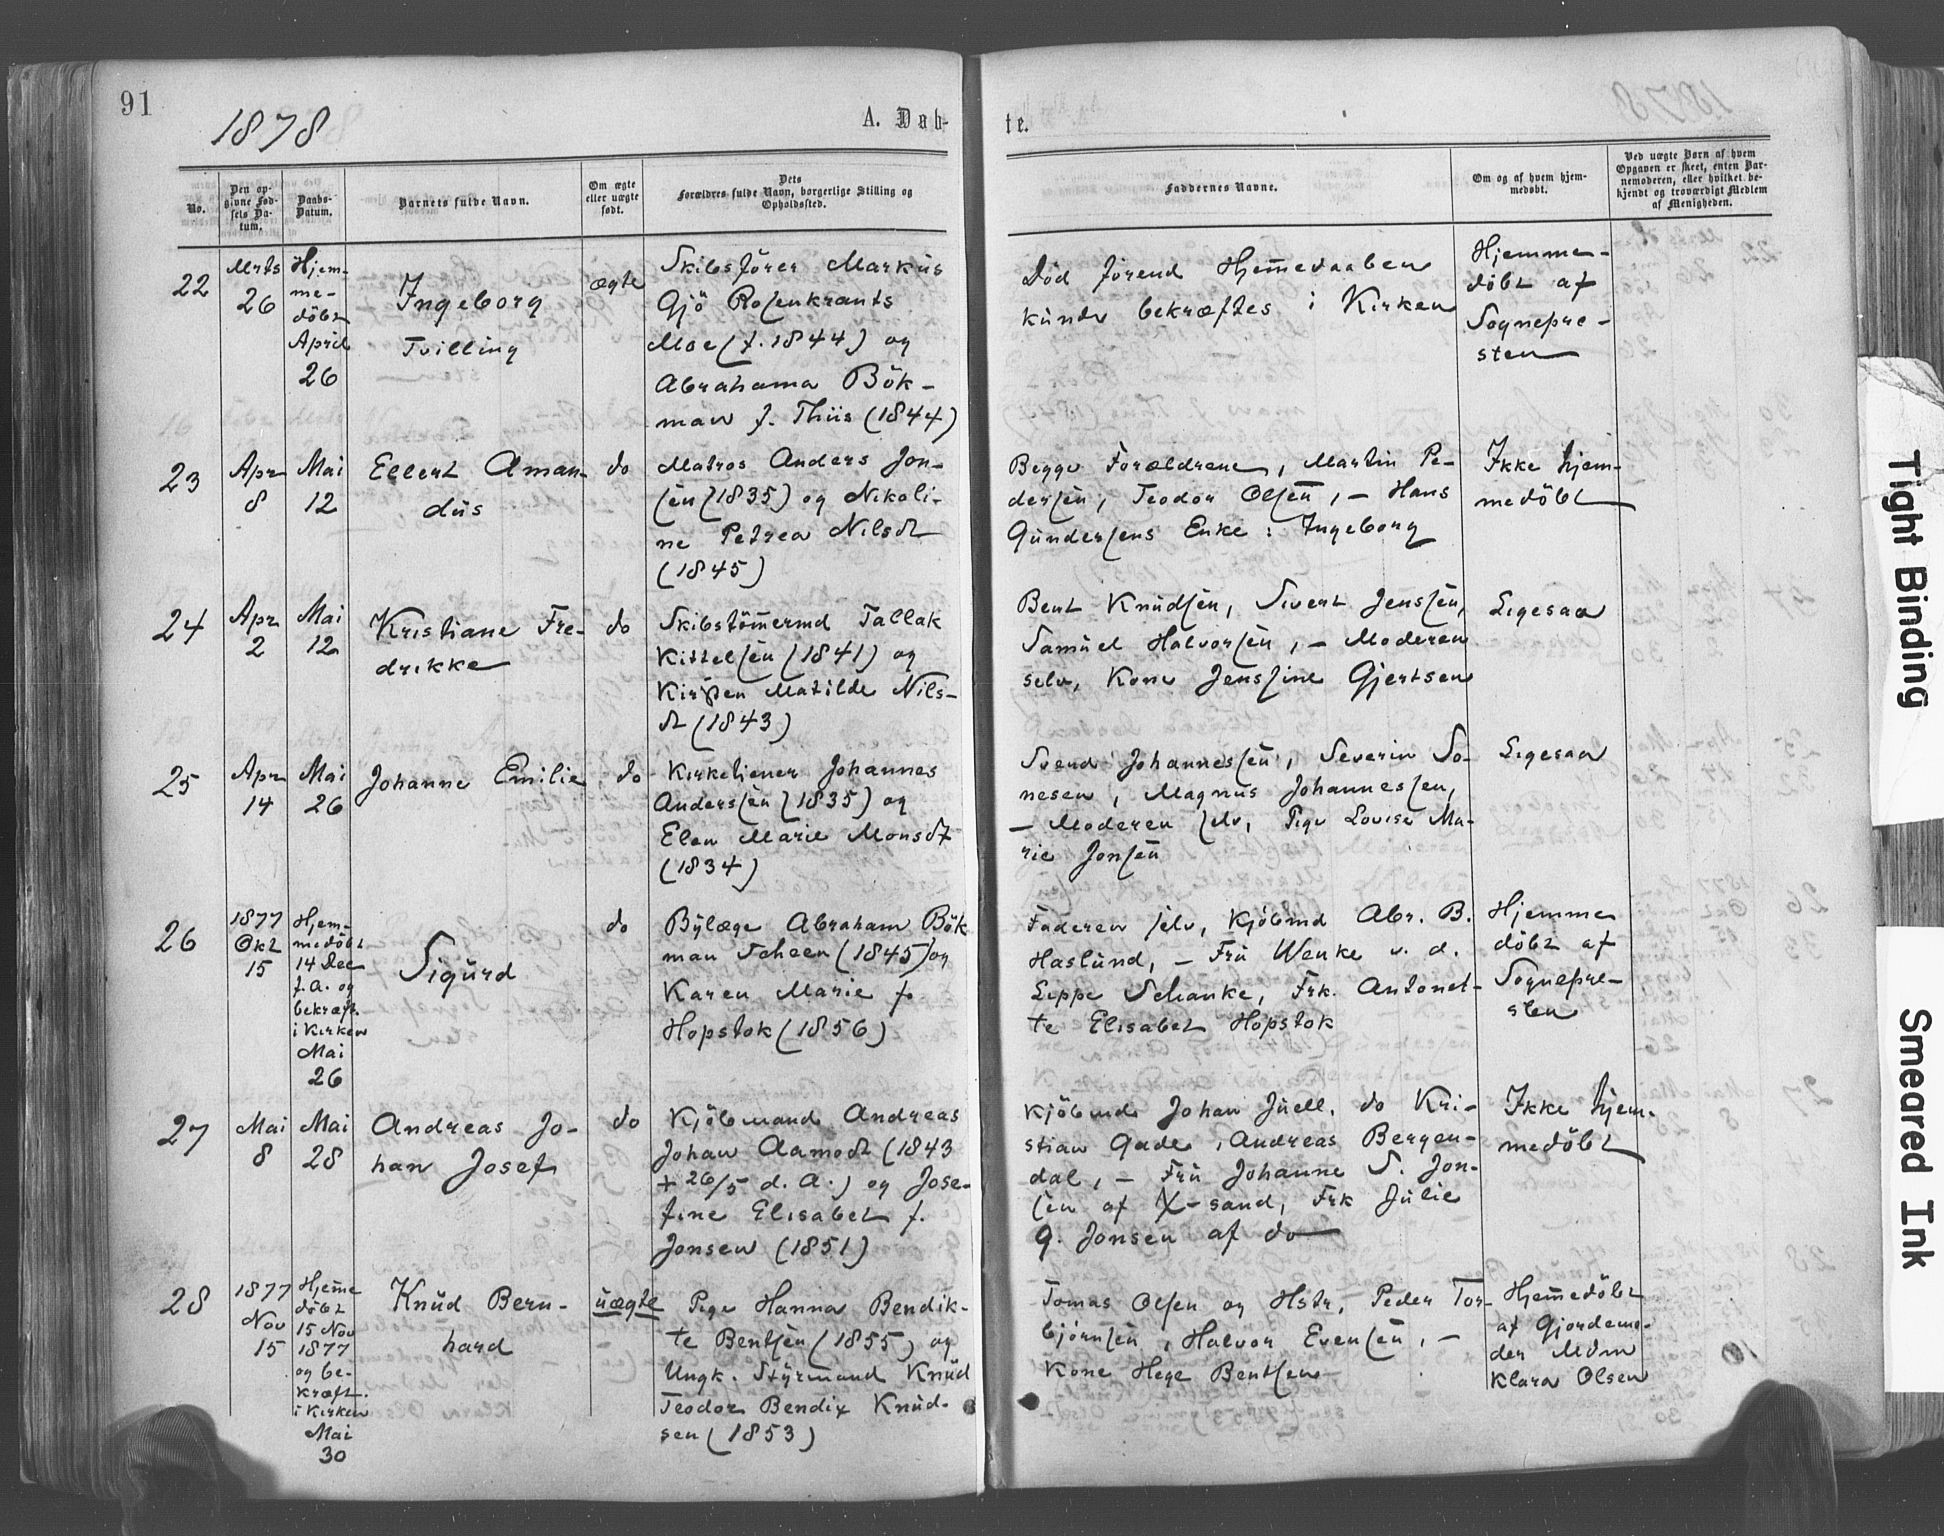 91
1878
A. Døb-
te.
No.
Den op-
givne Fød-
sels Da-
tum.
Daabs-
Datum.
Barnets fulde Navn.
Om ægte
eller uægte
født.
Dets
Forældres fulde Navn, borgerlige Stilling og
Opholdssted.
Faddernes Navne.
Om og af hvem hjem-
medøbt.
Ved uægte Børn af hvem
Opgaven er skeet, enten Bar-
nemoderen, eller hvilket be-
kjendt og troværdigt Medlem
af Menigheden.
22
Mrts
26
Hjem-
me-
döbt
April
26
Ingeborg
Tvilling
ægte
Skibsförer Markus
Gjö Rosenkrants
Moe (f. 1844) og
Abrahama Bök-
man f. Thiis (1844)
Död förend Hjem̄edaaben
kunde bekræftes i Kirken
Hjemme-
döbt af
Sognepre-
sten
23
Apr
8
Mai
12
Ellert Aman-
dus
do
Matros Anders Jon-
sen (1835) og Nikoli-
ne Petrea Nilsdt
(1845)
Begge Forældrene, Martin Pe-
dersen, Teodor Olsen, — Hans
Gundersens Enke: Ingeborg
Ikke hjem-
medöbt
24
Apr
2
Mai
12
Kristiane Fre-
drikke
do
Skibstöm̄ermd Tallak
Kittelsen (1841) og
Kirsten Matilde Nils-
dt (1843)
Bent Knudsen, Sivert Jenssen,
Samuel Halvorsen, — Moderen
selv, Kone Jenssine Gjertsen
Ligesaa
25
Apr
14
Mai
26
Johanne Emilie
do
Kirketjener Johannes
Anderssen (1835) og
Elen Marie Monsdt
(1834)
Svend Johannessen, Severin So-
nesen, Magnus Johannessen,
— Moderen selv, Pige Lovise Ma-
rie Jonsen
Ligesaa
26
1877
Okt
15
Hjem-
medöbt
14 Dec
f. A. og
bekræft.
i Kirken
Mai
26
Sigurd
do
Bylæge Abraham Bök
man Scheen (1845) og
Karen Marie f.
Hopstok (1856)
Faderen selv, Kjöbmd Abr. B.
Haslund, — Fru Wenke v. d.
Lippe Schanke, Frk. Antonet-
te Elisabet Hopstok
Hjemme
döbt af
Sognepre-
sten
27
Mai
8
Mai
28
Andreas Jo-
han Josef
do
Kjöbmand Andreas
Johan Aamodt (1843
+ 26/5 d. A.) og Jose-
fine Elisabet f.
Jonsen (1851)
Kjöbmd Johan Juell, do Kri-
stian Gade, Andreas Bergen-
dal, — Fru Johanne S. Jon-
sen af X-sand, Frk Julie
G. Jonsen af do
Ikke hjem-
medöbt
28
1877
Nov
15
Hjem̄e
döbt
15 Nov
1877
og be-
kræft.
i Kirken
Mai
30
Knud Bern-
hard
uægte
Pige Hanna Bendik-
te Bentsen (1855) og
Ungk. Styrmand Knud
Teodor Bendix Knud-
sen (1853)
Tomas Olsen og Hstr, Peder Tor-
björnsen, Halvor Evensen, —
Kone Hege Bentsen
Hjem̄edöbt
af Gjordemo-
der Mdm
Klara Olsen
Tight Binding
Smeared Ink